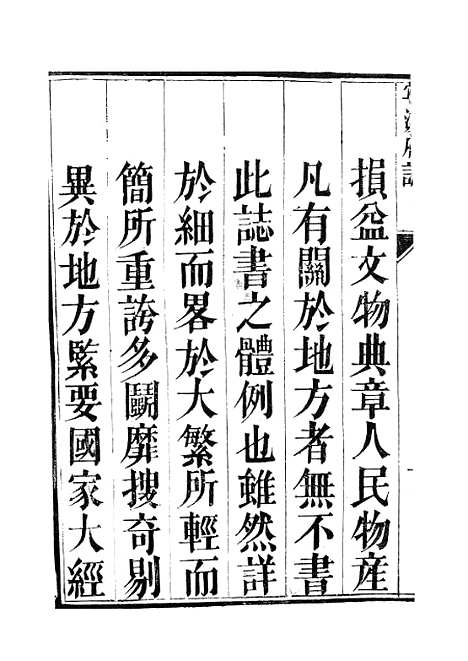 損益文物典章人民物産
凡有關於地方者無不書
此誌書之體例也雖然詳
於細而畧於大繁所輕而
簡所重誇多鬭靡搜奇剔
異於地方緊要國家大經